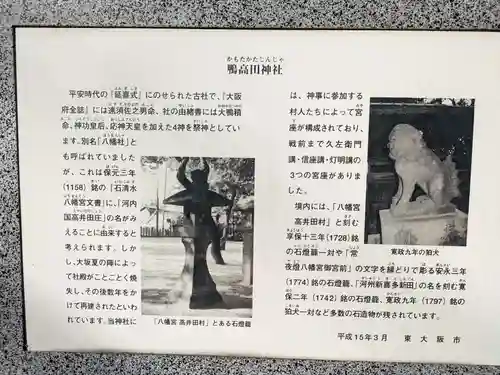 かもたかたじんじゃ
鴨高田神社
平安時代の『延喜式』にのせられた古社で、『大阪
府全誌』には速須佐之男命、社の由緒書には大鴨積
命、神功皇后、応神天皇を加えた4神を祭神としてい
ます。別名『八幡社』と
も呼ばれていました
が、これは保元三年
(1158) 銘の『石清水
八幡宮文書』に、『河内
国高井田庄』の名がみ
えることに由来すると
考えられます。しか
し、大坂夏の陣によっ
て社殿がことごとく焼
失し、その後数年をか
けて再建されたといわ
れています。当神社に
『八幡宮 高井田村』とある石燈籠
は、神事に参加する
村人たちによって宮
座が構成されており、
戦前まで久左衛門
講・信座講・灯明講の
3つの宮座がありま
した。
境内には、『八幡宮
高井田村』と刻む
享保十三年(1728) 銘
の石燈籠一対や『常
夜燈八幡宮御宮前』の文字を縁どりで彫る安永三年
(1774) 銘の石燈籠、『河州新喜多新田』の名を刻む寛
保二年 (1742) 銘の石燈籠、寛政九年 (1797) 銘の
狛犬一対など多数の石造物が残されています。
寛政九年の狛犬
平成15年3月 東大阪市